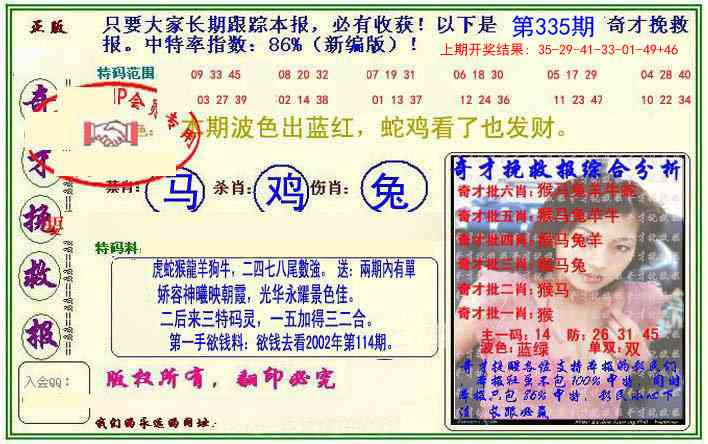 正版
只要大家长期跟踪本报，必有收获！以下是 第335期 奇才挽救
报。中特率指数：86%（新编版）！
上期开奖结果：35-29-41-33-01-49+46
特码范围
09 33 45 08 20 32 07 19 31 06 18 30 05 17 29 04 28 40
03 27 39 02 14 38 01 13 37 12 24 36 11 23 47 10 22 34
奇才挽救报
VIP会员专用
本期波色出蓝红，蛇鸡看了也发财。
禁肖：马 杀肖：鸡 伤肖：兔
特码料：
虎蛇猴龍羊狗牛，二四七八尾數強。 送：兩期內有單
娇容神曦映朝霞，光华永耀景色佳。
二后来三特码灵，一五加得三二合。
第一手欲钱料：欲钱去看2002年第114期。
奇才挽救报综合分析
奇才批六肖：猴马兔羊牛蛇
奇才批五肖：猴马兔羊牛
奇才批四肖：猴马兔羊
奇才批三肖：猴马兔
奇才批二肖：猴马
奇才批一肖：猴
主一码：14 防：26 31 45
波色：蓝绿 单双：双
奇才挽救各位支持本报的彩民们
本报虽不包100%中特，同时
本报只包86%中特，彩民小心下
注，长跟必赢
入会QQ：
版权所有，翻印必究
我们的永远的网址：